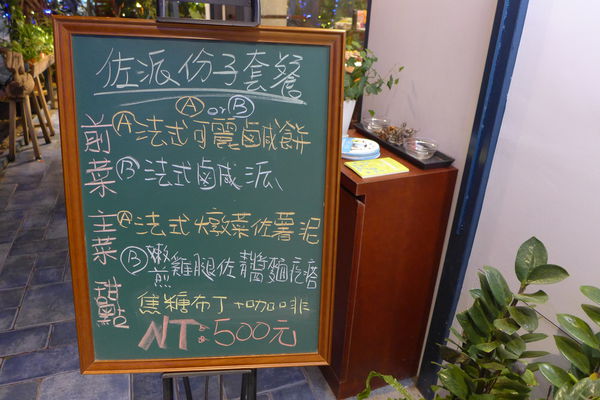 佐派份子套餐
Ⓐ or Ⓑ
前菜 Ⓐ法式可麗鹹餅
Ⓑ法式鹵咸派
主菜 Ⓐ法式燉菜佐薯泥
Ⓑ嫩煎雞腿佐青醬麵疙瘩
甜點 焦糖布丁+咖啡
NT:500元